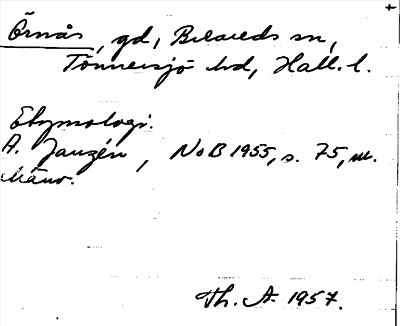 Örnås, gd, Breareds sn,
Tönnersjö hd, Hall. l.
Etymologi.
A. Janzén, NoB 1955, s. 75, m.
hänv.
Th. A. 1957.